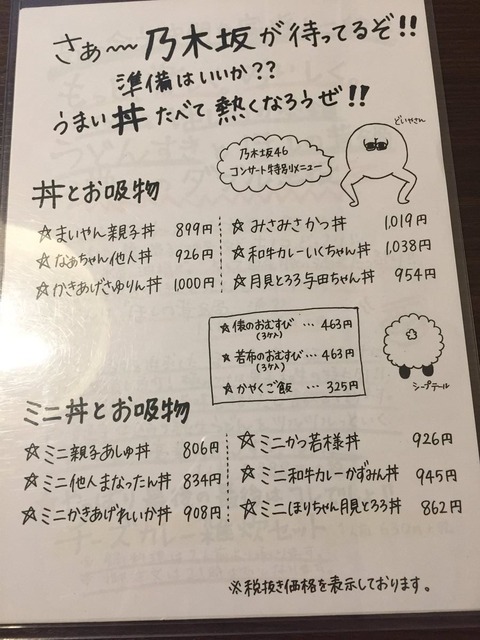 さぁ〜〜乃木坂が待ってるぞ!!
準備はいいか??
うまい丼たべて熱くなろうぜ!!
どいやさん
乃木坂46
コンサート特別メニュー
丼とお吸物
☆まいやん親子丼 899円
☆なぁちゃん他人丼 926円
☆かきあげさゆりん丼 1,000円
☆みさみさかつ丼 1,019円
☆和牛カレーいくちゃん丼 1,038円
☆月見とろろ与田ちゃん丼 954円
☆俵のおむすび … 463円
(3ケ入)
☆若布のおむすび … 463円
(3ケ入)
☆かやくご飯 … 325円
シープテール
ミニ丼とお吸物
☆ミニ親子あしゅ丼 806円
☆ミニ他人まなったん丼 834円
☆ミニかきあげれいか丼 908円
☆ミニかつ若様丼 926円
☆ミニ和牛カレーかずみん丼 945円
☆ミニほりちゃん月見とろろ丼 862円
※税抜き価格を表示しております。